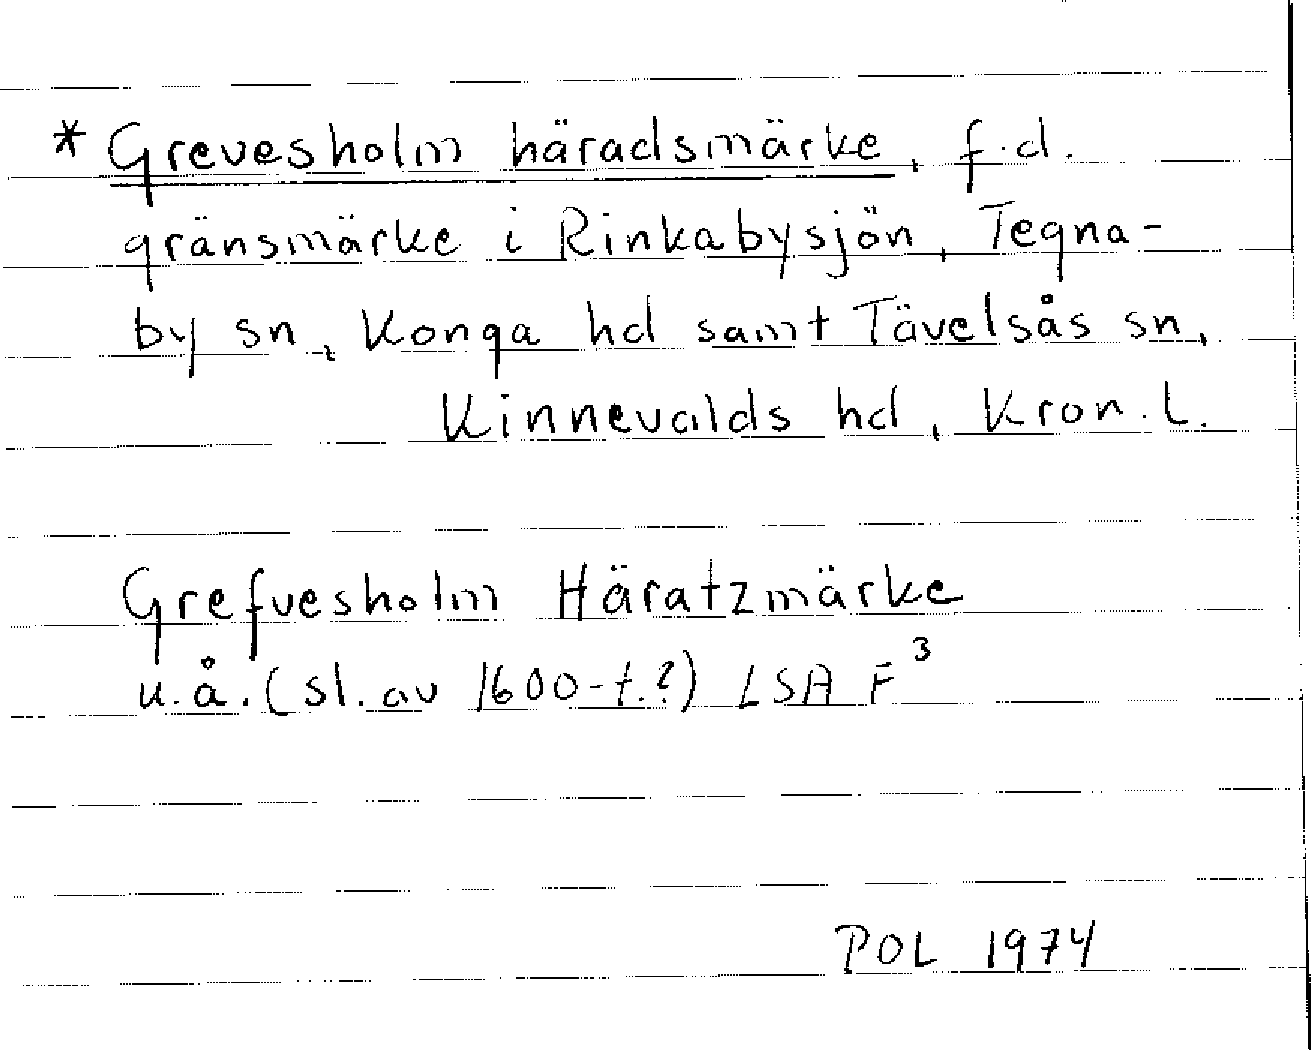 * Grevesholm häradsmärke, f.d.
gränsmärke i Rinkabysjön, Tegna-
by sn, Konga hd samt Tävelsås sn,
Kinnevalds hd, Kron. l.
Grefvesholm Häratzmärke
u.å. (sl. av 1600-t.?) LSA F³
POL 1974